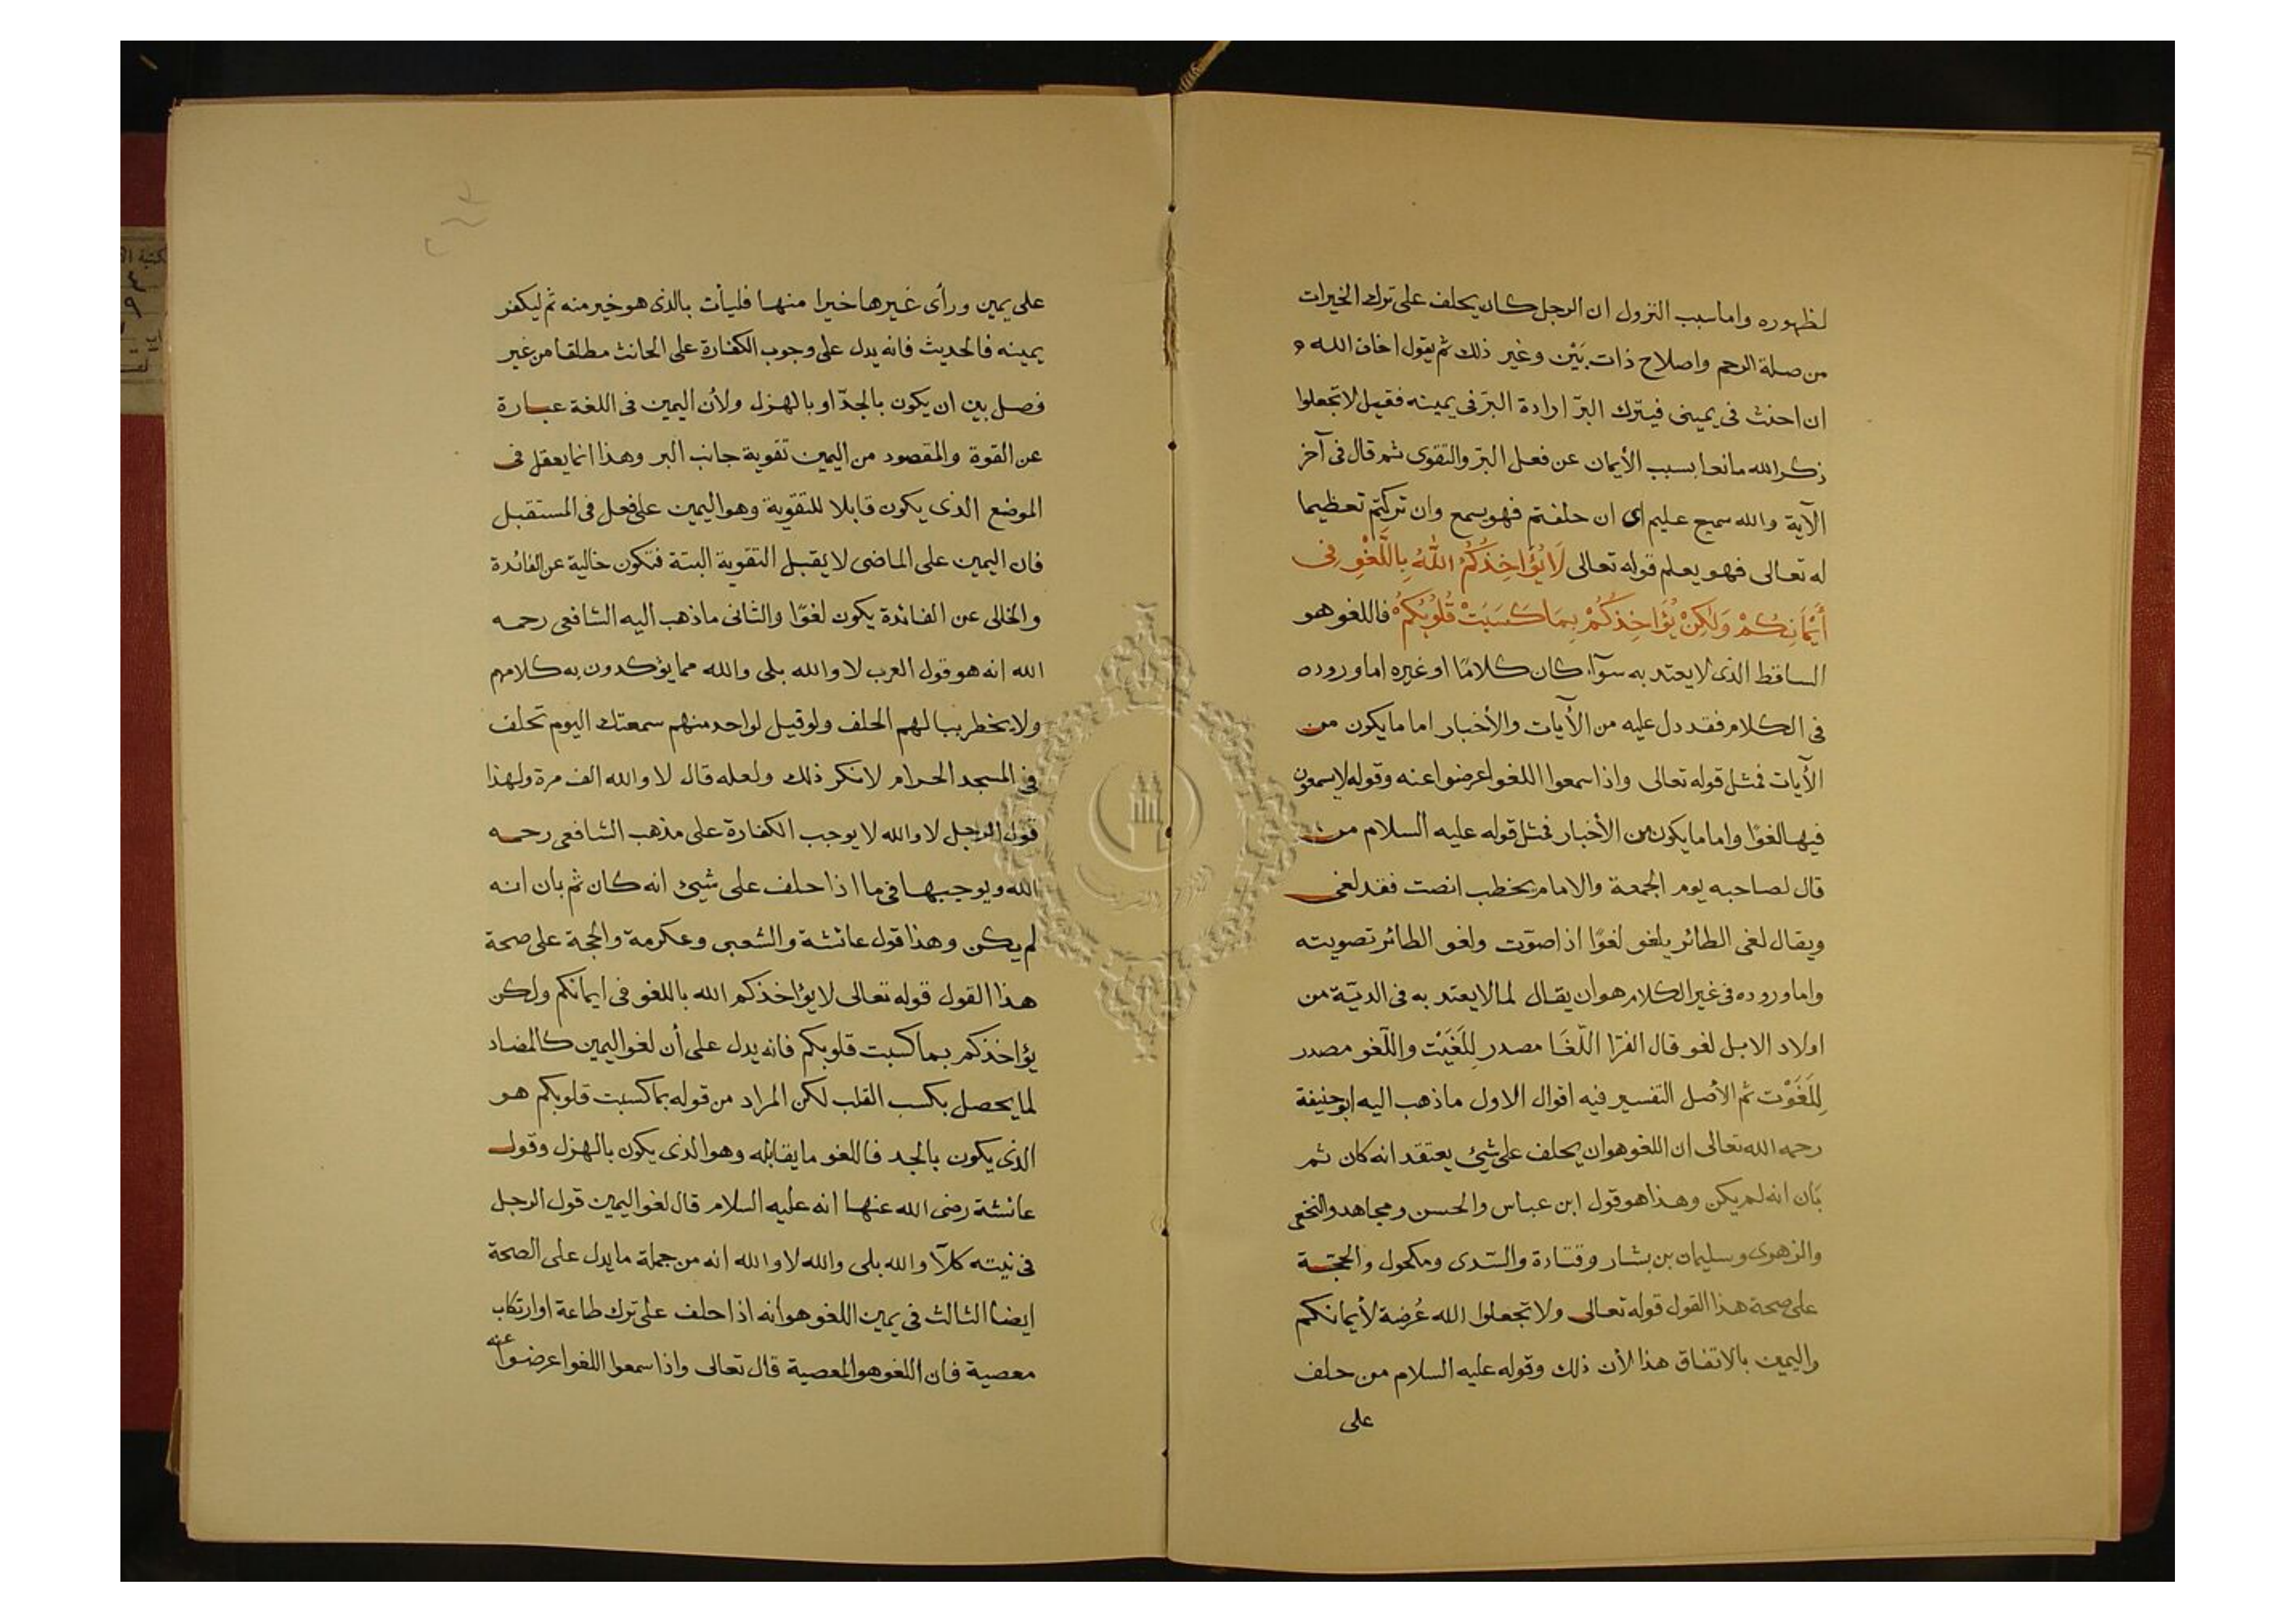 لظهوره واما سبب النزول ان الرجل كان يحلف على ترك الخيرات
من صلة الرحم واصلاح ذات بَيْن وغير ذلك ثم يقول اخاف الله و
ان احنث فى يمينى فيترك البرّ ارادة البرّ فى يمينه فقيل لا تجعلوا
ذكر الله مانعا بسبب الأيمان عن فعل البرّ والتقوى ثم قال فى آخر
الآية والله سميع عليم اى ان حلفتم فهو يسمع وان تركتم تعظيما
له تعالى فهو يعلم قوله تعالى لَا يُؤَاخِذُكُمُ اللّٰهُ بِاللَّغْوِ فِى
أَيْمَانِكُمْ وَلٰكِنْ يُؤَاخِذُكُمْ بِمَا كَسَبَتْ قُلُوبُكُمْ فاللغو هو
الساقط الذى لا يعتد به سوآء كان كلامًا او غيره اما وروده
فى الكلام فقد دل عليه من الأيات والأخبار اما ما يكون من
الأيات فمثل قوله تعالى واذا سمعوا اللغو اعرضوا عنه وقوله لا يسمعون
فيها لغوًا واما ما يكون من الأخبار فمثل قوله عليه السلام من
قال لصاحبه يوم الجمعة والامام يخطب انصت فقد لغى
ويقال لغى الطائر يلغو لغوًا اذا صوّت ولغو الطائر تصويته
واما وروده فى غير الكلام هو ان يقال لما لا يعتد به فى الديّة من
اولاد الابل لغو قال الفرّا اللّغَا مصدر لِلَغَيْت واللّغو مصدر
لِلَغَوْت ثم الأصل التفسير فيه اقوال الاول ما ذهب اليه ابو حنيفة
رحمه الله تعالى ان اللغو هو ان يحلف على شيئ يعتقد انه كان ثم
بَان انه لم يكن وهذا هو قول ابن عباس والحسن ومجاهد والنخعى
والزهرى وسليمان بن بشار وقتادة والسّدى ومكحول والحجّة
على صحة هذا القول قوله تعالى ولا تجعلوا الله عُرضة لأيمانكم
واليمين بالاتفاق هذا لأن ذلك وقوله عليه السلام من حلف
على
على يمين ورأى غيرها خيرا منها فليأت بالذى هو خير منه ثم ليكفر
يمينه فالحديث فانه يدل على وجوب الكفارة على الحانث مطلقا من غير
فصل بين ان يكون بالجدّ او بالهزل ولأن اليمين فى اللغة عبارة
عن القوة والمقصود من اليمين تقوية جانب البر وهذا انما يعقل فى
الموضع الذى يكون قابلا للتقوية وهو اليمين على فعل فى المستقبل
فان اليمين على الماضى لا يقبل التقوية البتة فتكون خالية عن الفائدة
والخالى عن الفائدة يكون لغوًا والثانى ما ذهب اليه الشافعى رحمه
الله انه هو قول العرب لا والله بلى والله مما يؤكدون به كلامهم
ولا يخطر ببالهم الحلف ولو قيل لواحد منهم سمعتك اليوم تحلف
فى المسجد الحرام لا نكر ذلك ولعله قال لا والله الف مرة ولهذا
قول الرجل لا والله لا يوجب الكفارة على مذهب الشافعى رحمه
الله ويوجبها فى ما اذا حلف على شيئ انه كان ثم بان انه
لم يكن وهذا قول عائشة والشعبى وعكرمة والحجة على صحة
هذا القول قوله تعالى لا يؤاخذكم الله باللغو فى ايمانكم ولكن
يؤاخذكم بما كسبت قلوبكم فانه يدل على أن لغو اليمين كالمضاد
لما يحصل بكسب القلب لكن المراد من قوله بما كسبت قلوبكم هو
الذى يكون بالجد فاللغو ما يقابله وهو الذى يكون بالهزل وقول
عائشة رضى الله عنها انه عليه السلام قال لغو اليمين قول الرجل
فى نيته كلّا والله بلى والله لا والله انه من جملة ما يدل على الصحة
ايضا الثالث فى يمين اللغو هو أنه اذا حلف على ترك طاعة او ارتكاب
معصية فان اللغو هو المعصية قال تعالى واذا سمعوا اللغو اعرضوا عنه